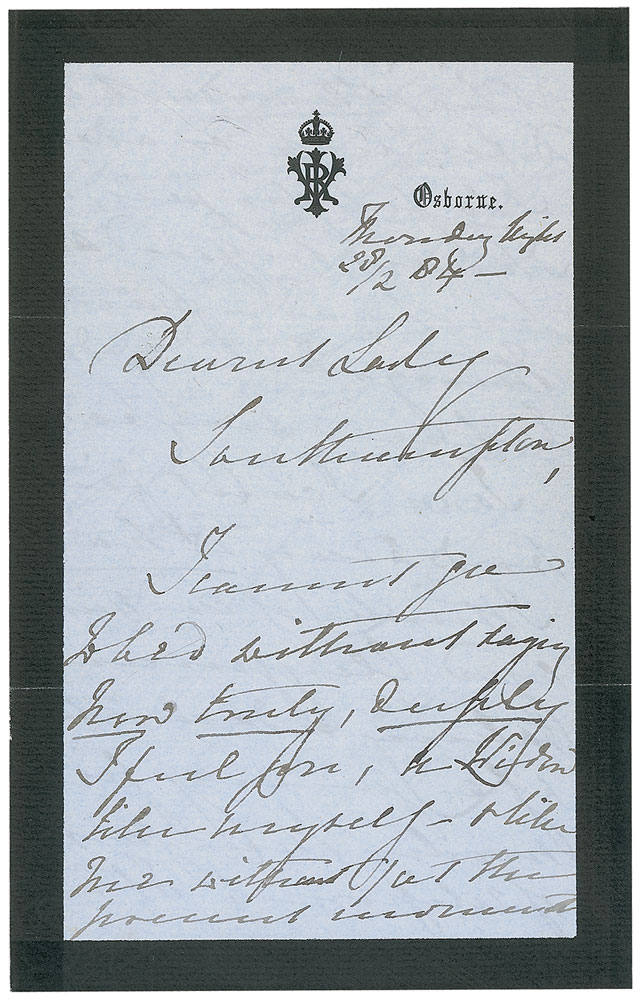 VRI
Osborne.
Thursday Night
28/2 84 —
Dearest Lady
Southampton,
I cannot go
to bed without saying
how truly, deeply
I feel for, a Widow
like myself — & like
me without at the
present moment